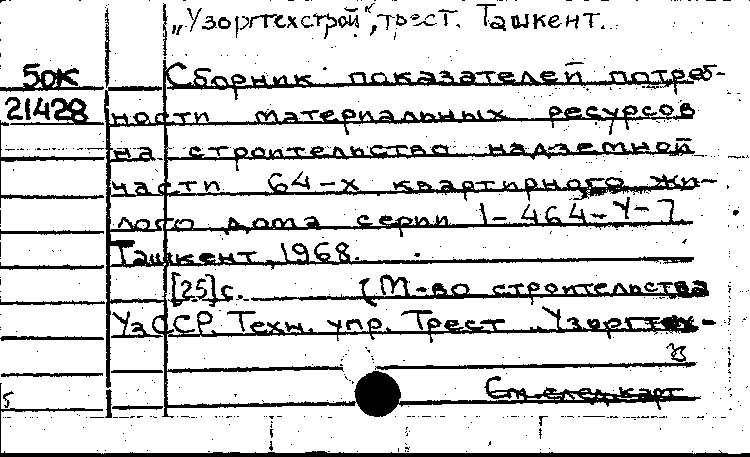 „Узоргтехстрой“, трест. Ташкент.
50К
21428
Сборник показателей потреб-
ности материальных ресурсов
на строительство надземной
части 64-х квартирного жи-
лого дома серии 1-464-У-7
Ташкент, 1968.
[25]с. (М-во строительства
УзССР. Техн. упр. Трест „Узоргтех-
См.след.карт